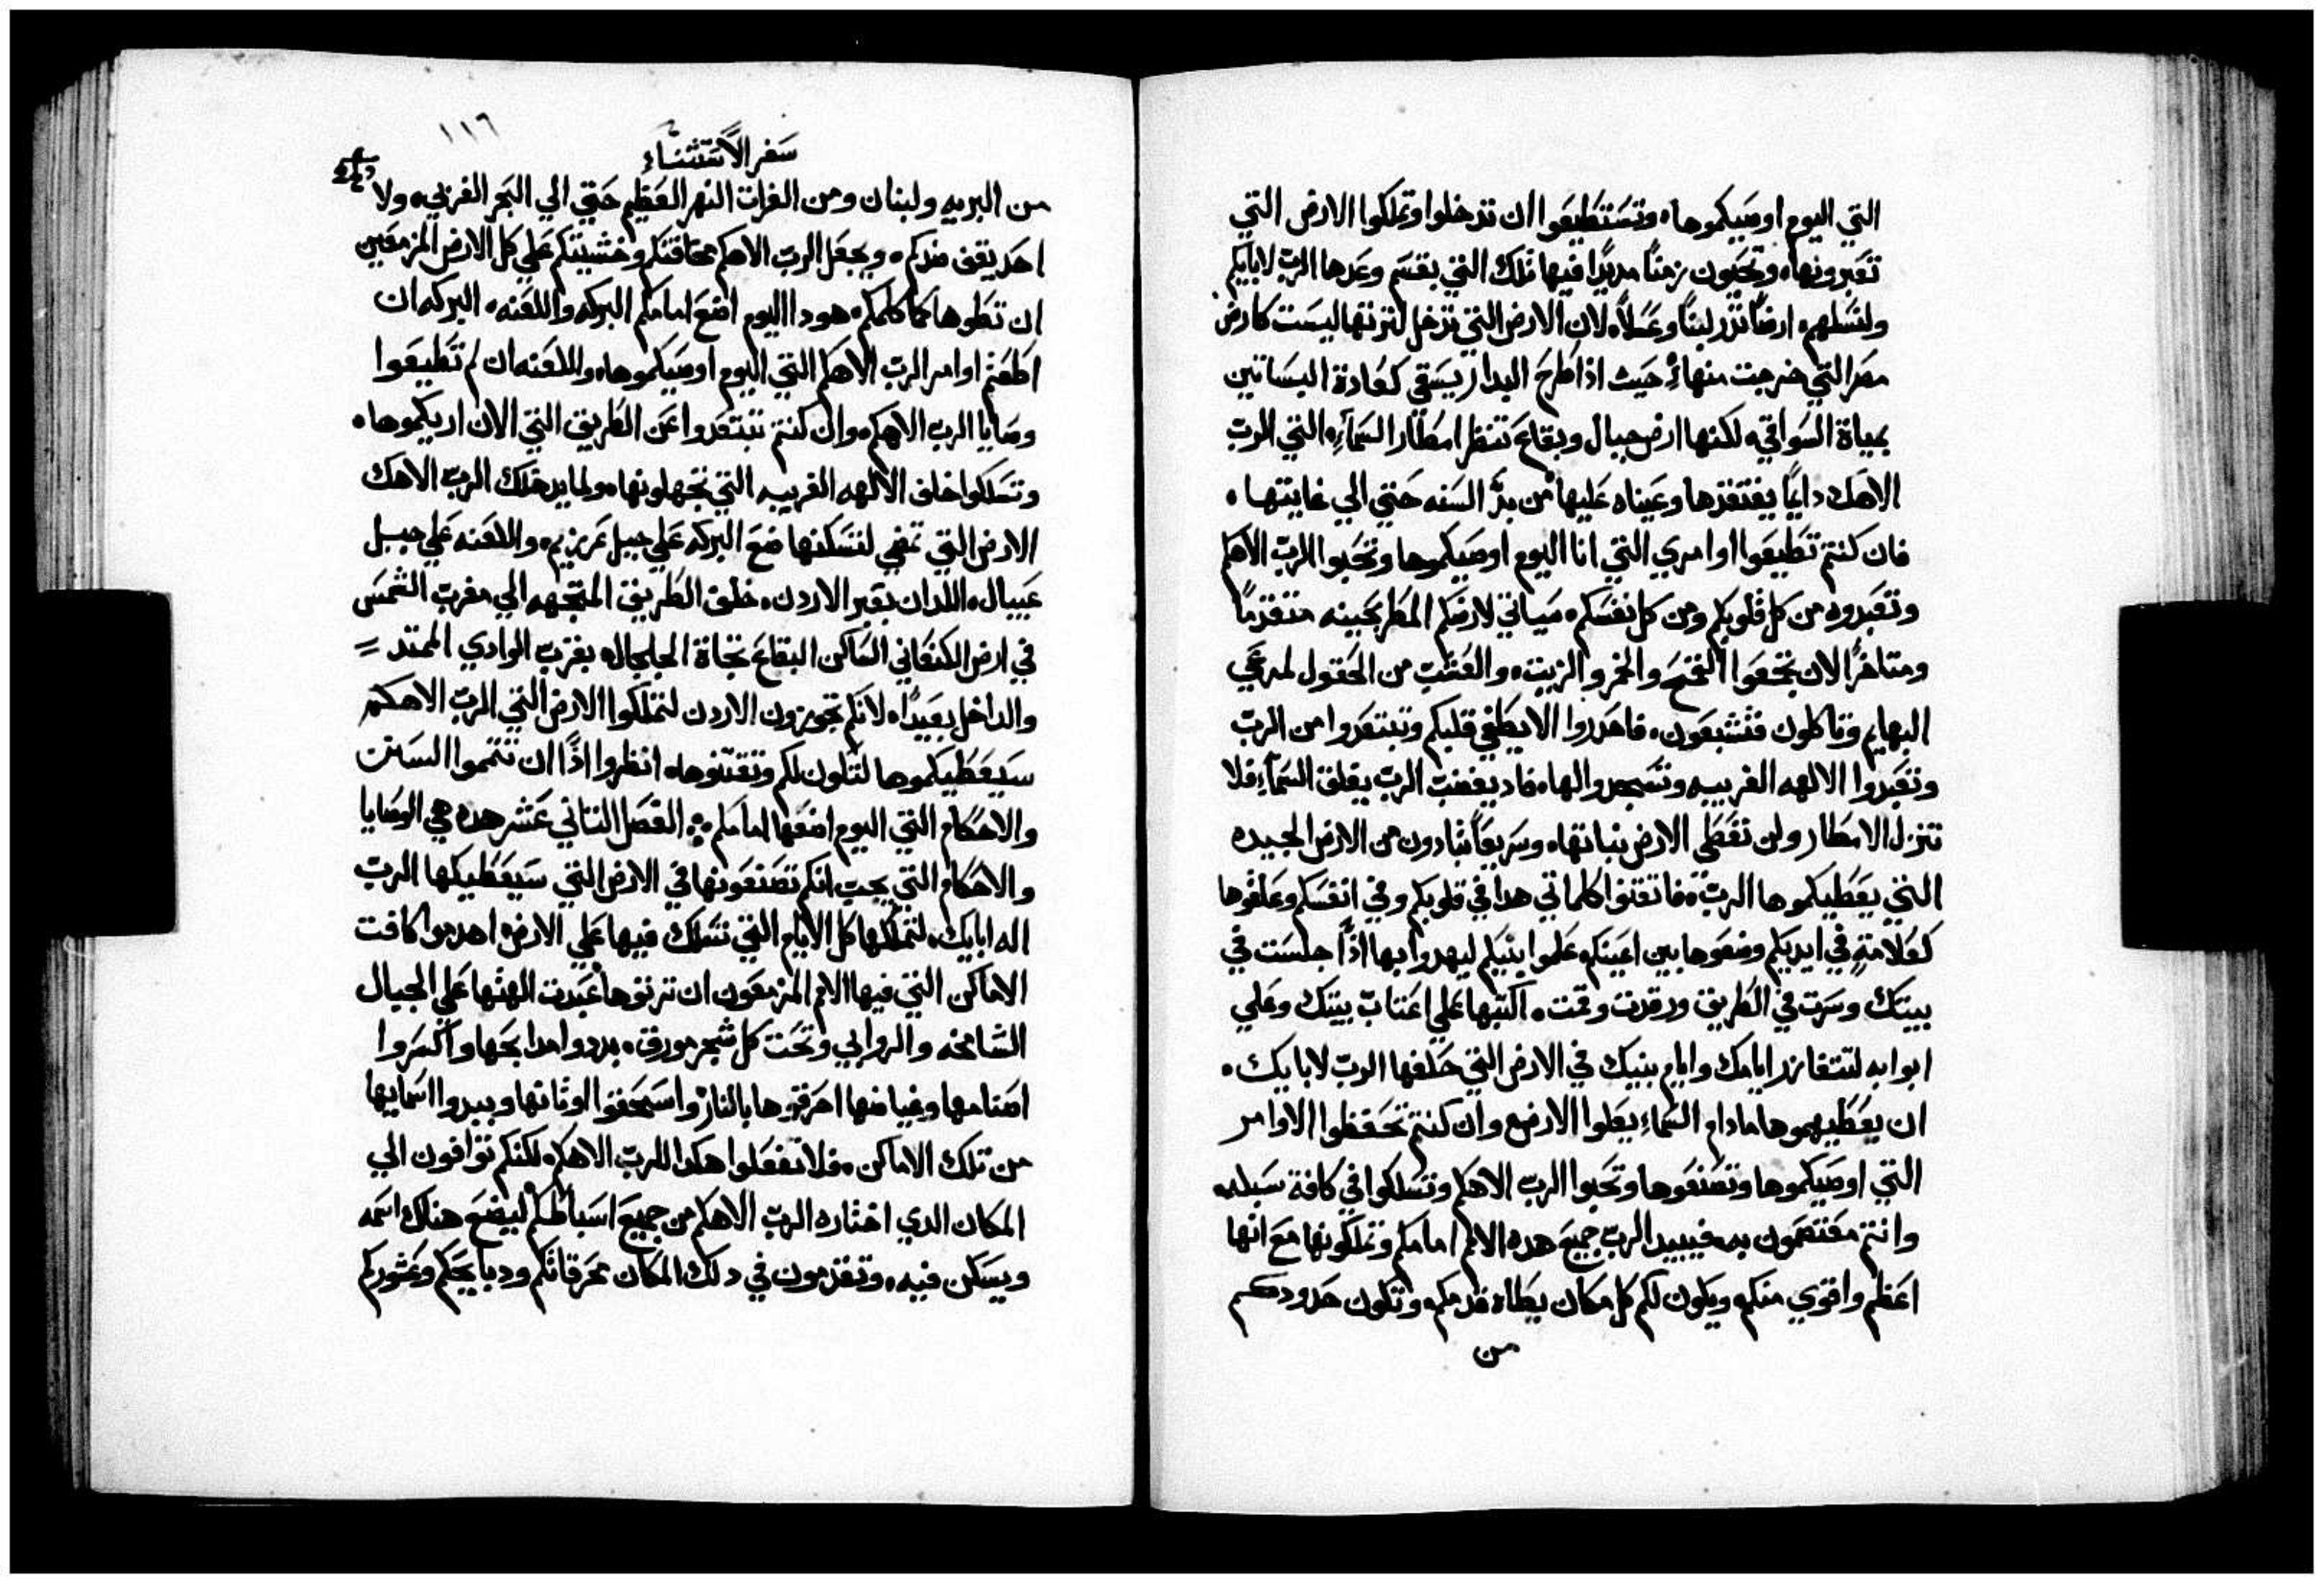 التي اليوم اوصيكموها، وتستطيعوا ان تدخلوا وتملكوا الارض التي
تعبرونها، وتحيون زمنًا مديدًا فيها تلك التي بقسم وعدها الرب لابايكم
ولنسلهم، ارضًا تدر لبنًا وعسلًا، لان الارض التي تدخل لترتها ليست كارض
مصر التي خرجت منها، حيث اذا طرح البدار يسقي كعادة البساتين
بمياة السواقي، لكنها ارض جبال وبقاع تنتظر امطار السماء، التي الرب
الاهك دايمًا يفتقدها وعيناه عليها من بدء السنه حتي الي غايتها،
فان كنتم تطيعوا اوامري التي انا اليوم اوصيكموها وتحبوا الرب الاهكم
وتعبدوه من كل قلوبكم ومن كل نفسكم، سياتي لارضكم المطر بحينه متقدمًا
ومتاخرًا لان تجمعوا القمح والخمر والزيت، والعشب من الحقول لمرعي
البهايم وتاكلون فتشبعون، فاحدروا الا يطغي قلبكم وتبتعدوا من الرب
وتعبدوا الالهه الغريبيه وتسجدوا لها، فاد يغضب الرب يغلق السماء فلا
تنزل الامطار ولن تعطى الارض نباتها، وسريعًا تبادون من الارض الجيده
التي يعطيكموها الرب، فاتقنوا كلماتي هدا في قلوبكم وفي انفسكم وعلقوها
كعلامة في ايديكم وضعوها بين اعينكم، علموا بنيكم ليهدوا بها اذا جلست في
بيتك وسرت في الطريق ورقدت وقمت، اكتبها علي اعتاب بيتك وعلي
ابوابه لتتغازر ايامك وايام بنيك في الارض التي حلفها الرب لابايك،
ان يعطيهموها مادام السماء يعلوا الارض، وان كنتم تحفظوا الاوامر
التي اوصيكموها وتصنعوها وتحبوا الرب الاهكم وتسلكوا في كافة سبله
وانتم معتصمون به، فيبيد الرب جميع هده الامم امامكم وتملكونها مع انها
اعظم واقوي منكم، ويكون لكم كل مكان يطاه قدمكم، وتكون حدودكم
من
١١٦
سفر الاستثناء
من البريه ولبنان ومن الفرات النهر العظيم حتي الي البحر الغربي، ولا
احد يقف ضدكم، ويجعل الرب الاهكم مخافتكم وخشيتكم علي كل الارض المزمعين
ان تطوها كما كلمكم، هودا اليوم اضع امامكم البركه واللعنه، البركه ان
اطعتم اوامر الرب الاهكم التي اليوم اوصيكموها، واللعنه ان لم تطيعوا
وصايا الرب الاهكم، وان كنتم تبتعدوا عن الطريق التي الان اريكموها،
وتسلكوا خلف الالهه الغريبيه التي تجهلونها، ولما يدخلك الرب الاهك
الارض التي تمضي لتسكنها ضع البركه علي جبل غريزيم، واللعنه علي جبل
عيبال، اللدان بعبر الاردن، خلف الطريق المتجهه الي مغرب الشمس
في ارض الكنعاني الساكن البقاع تجاة الجلجال، بقرب الوادي الممتد =
والداخل بعيدًا، لانكم تجوزون الاردن لتملكوا الارض التي الرب الاهكم
سيعطيكموها لتكون لكم وتقتنوها، انظروا اذًا ان تتمموا السنن
والاحكام التي اليوم اضعها امامكم ⁘ الفصل التاني عشر هده هي الوصايا
والاحكام التي يجب انكم تصنعونها في الارض التي سيعطيكها الرب
اله ابايك، لتملكها كل الايام التي تسلك فيها علي الارض، اهدموا كافت
الاماكن التي فيها الامم المزمعون ان ترتوها عبدت الهتها علي الجبال
الشامخه والروابي وتحت كل شجر مورق، بددوا مدابحها واكسروا
اصنامها وغياضها احرقوها بالنار، واسحقوا اوثانها وبيدوا اسمايها
من تلك الاماكن، فلا تفعلوا هكدا للرب الاهكم، لكنكم توافون الي
المكان الدي اختاره الرب الاهكم من جميع اسباطكم ليضع هناك اسمه
ويسكن فيه، وتقدمون في دلك المكان محرقاتكم ودبايحكم وعشوركم